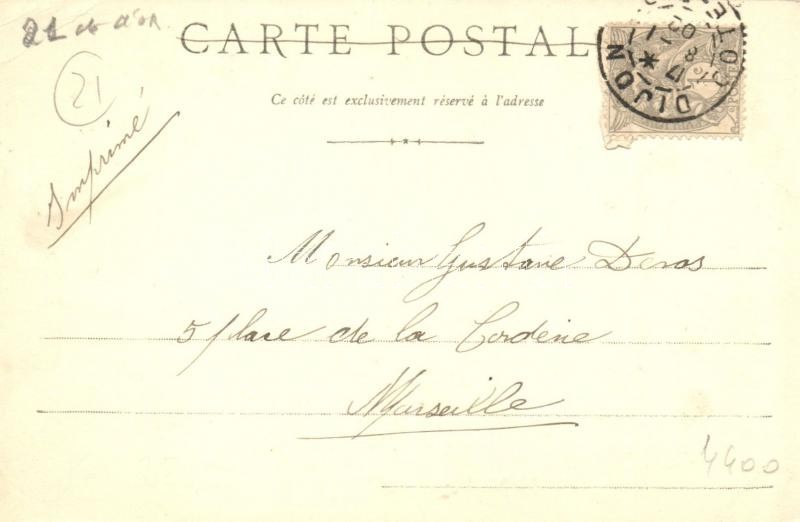 21 cote d'or
CARTE POSTALE
21
Ce côté est exclusivement réservé à l'adresse
Imprimé
DIJON
COTE
Monsieur Gustave Deros
5 place de la Corderie
Marseille
4400